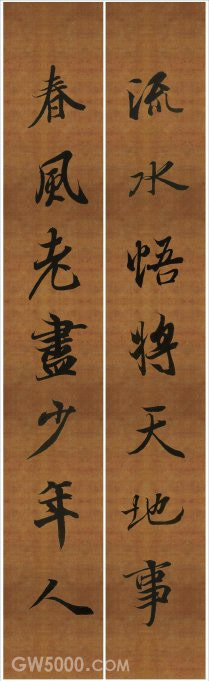 流水悟將天地事
春風老盡少年人
GW5000.com